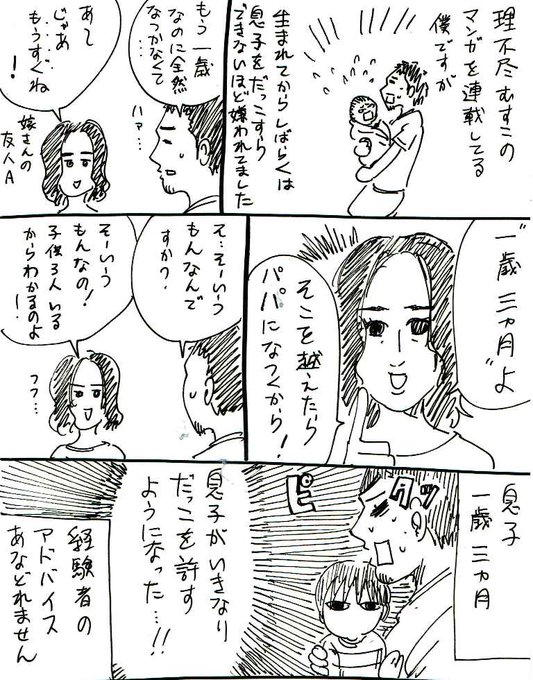 理不尽むすこの
マンガを連載してる
僕ですが
生まれてからしばらくは
息子をだっこすら
できないほど嫌われてました
もう一歳
なのに全然
なつかなくて
ハァ…
あー
じゃあ
もうすぐね
!
嫁さんの
友人A
"一歳三ヵ月"よ
そこを越えたら
パパになつくから!
そ…そーいう
もんなんで
すか?
そーいう
もんなの!
子供3人いる
からわかるのよ
フフ…
息子
一歳三ヵ月
ダッ
ピ
息子がいきなり
だっこを許す
ようになった…!!
経験者の
アドバイス
あなどれません